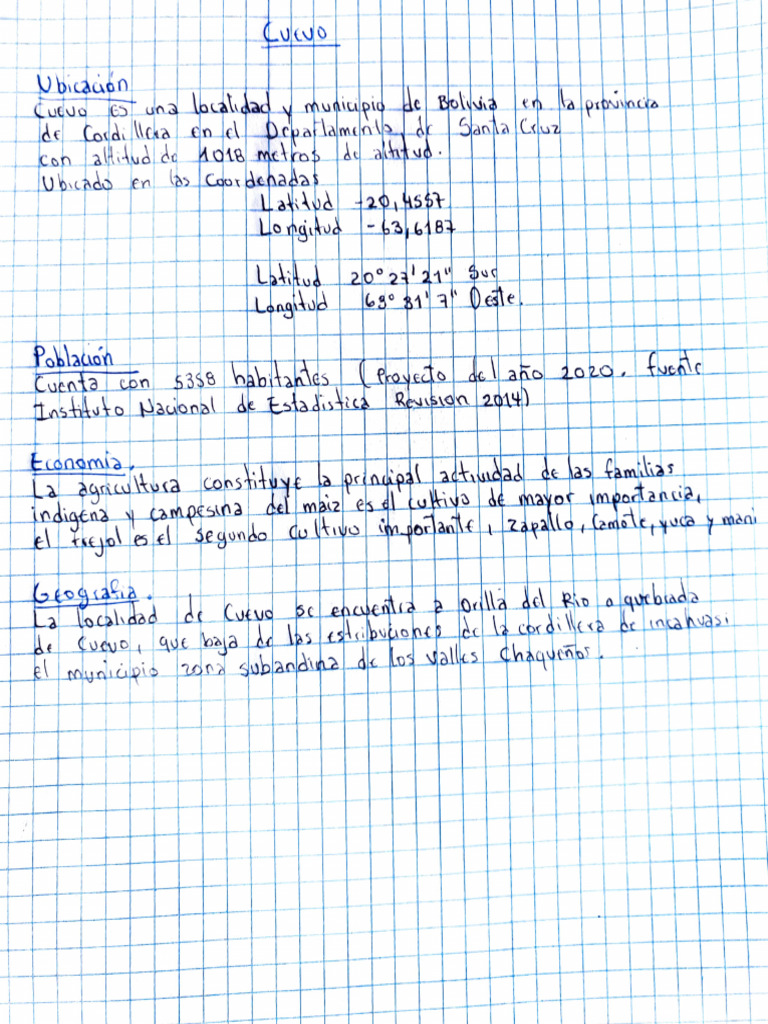 Cuevo
Ubicación
Cuevo es una localidad y municipio de Bolivia en la provincia
de Cordillera en el Departamento de Santa Cruz
con altitud de 1018 metros de altitud.
Ubicado en las Coordenadas
Latitud -20,4557
Longitud -63,6187
Latitud 20° 27' 21" Sur
Longitud 63° 31' 7" Oeste.
Población
Cuenta con 5358 habitantes (Proyecto del año 2020. fuente
Instituto Nacional de Estadistica Revision 2014)
Economia.
La agricultura constituye la principal actividad de las familias
indigena y campesina del maiz es el cultivo de mayor importancia,
el frejol es el segundo cultivo importante, zapallo, Camote, yuca y mani
Geografia.
La localidad de Cuevo se encuentra a orilla del Rio o quebrada
de Cuevo, que baja de las estribuciones de la cordillera de incahuasi
el municipio zona subandina de los valles Chaqueños.